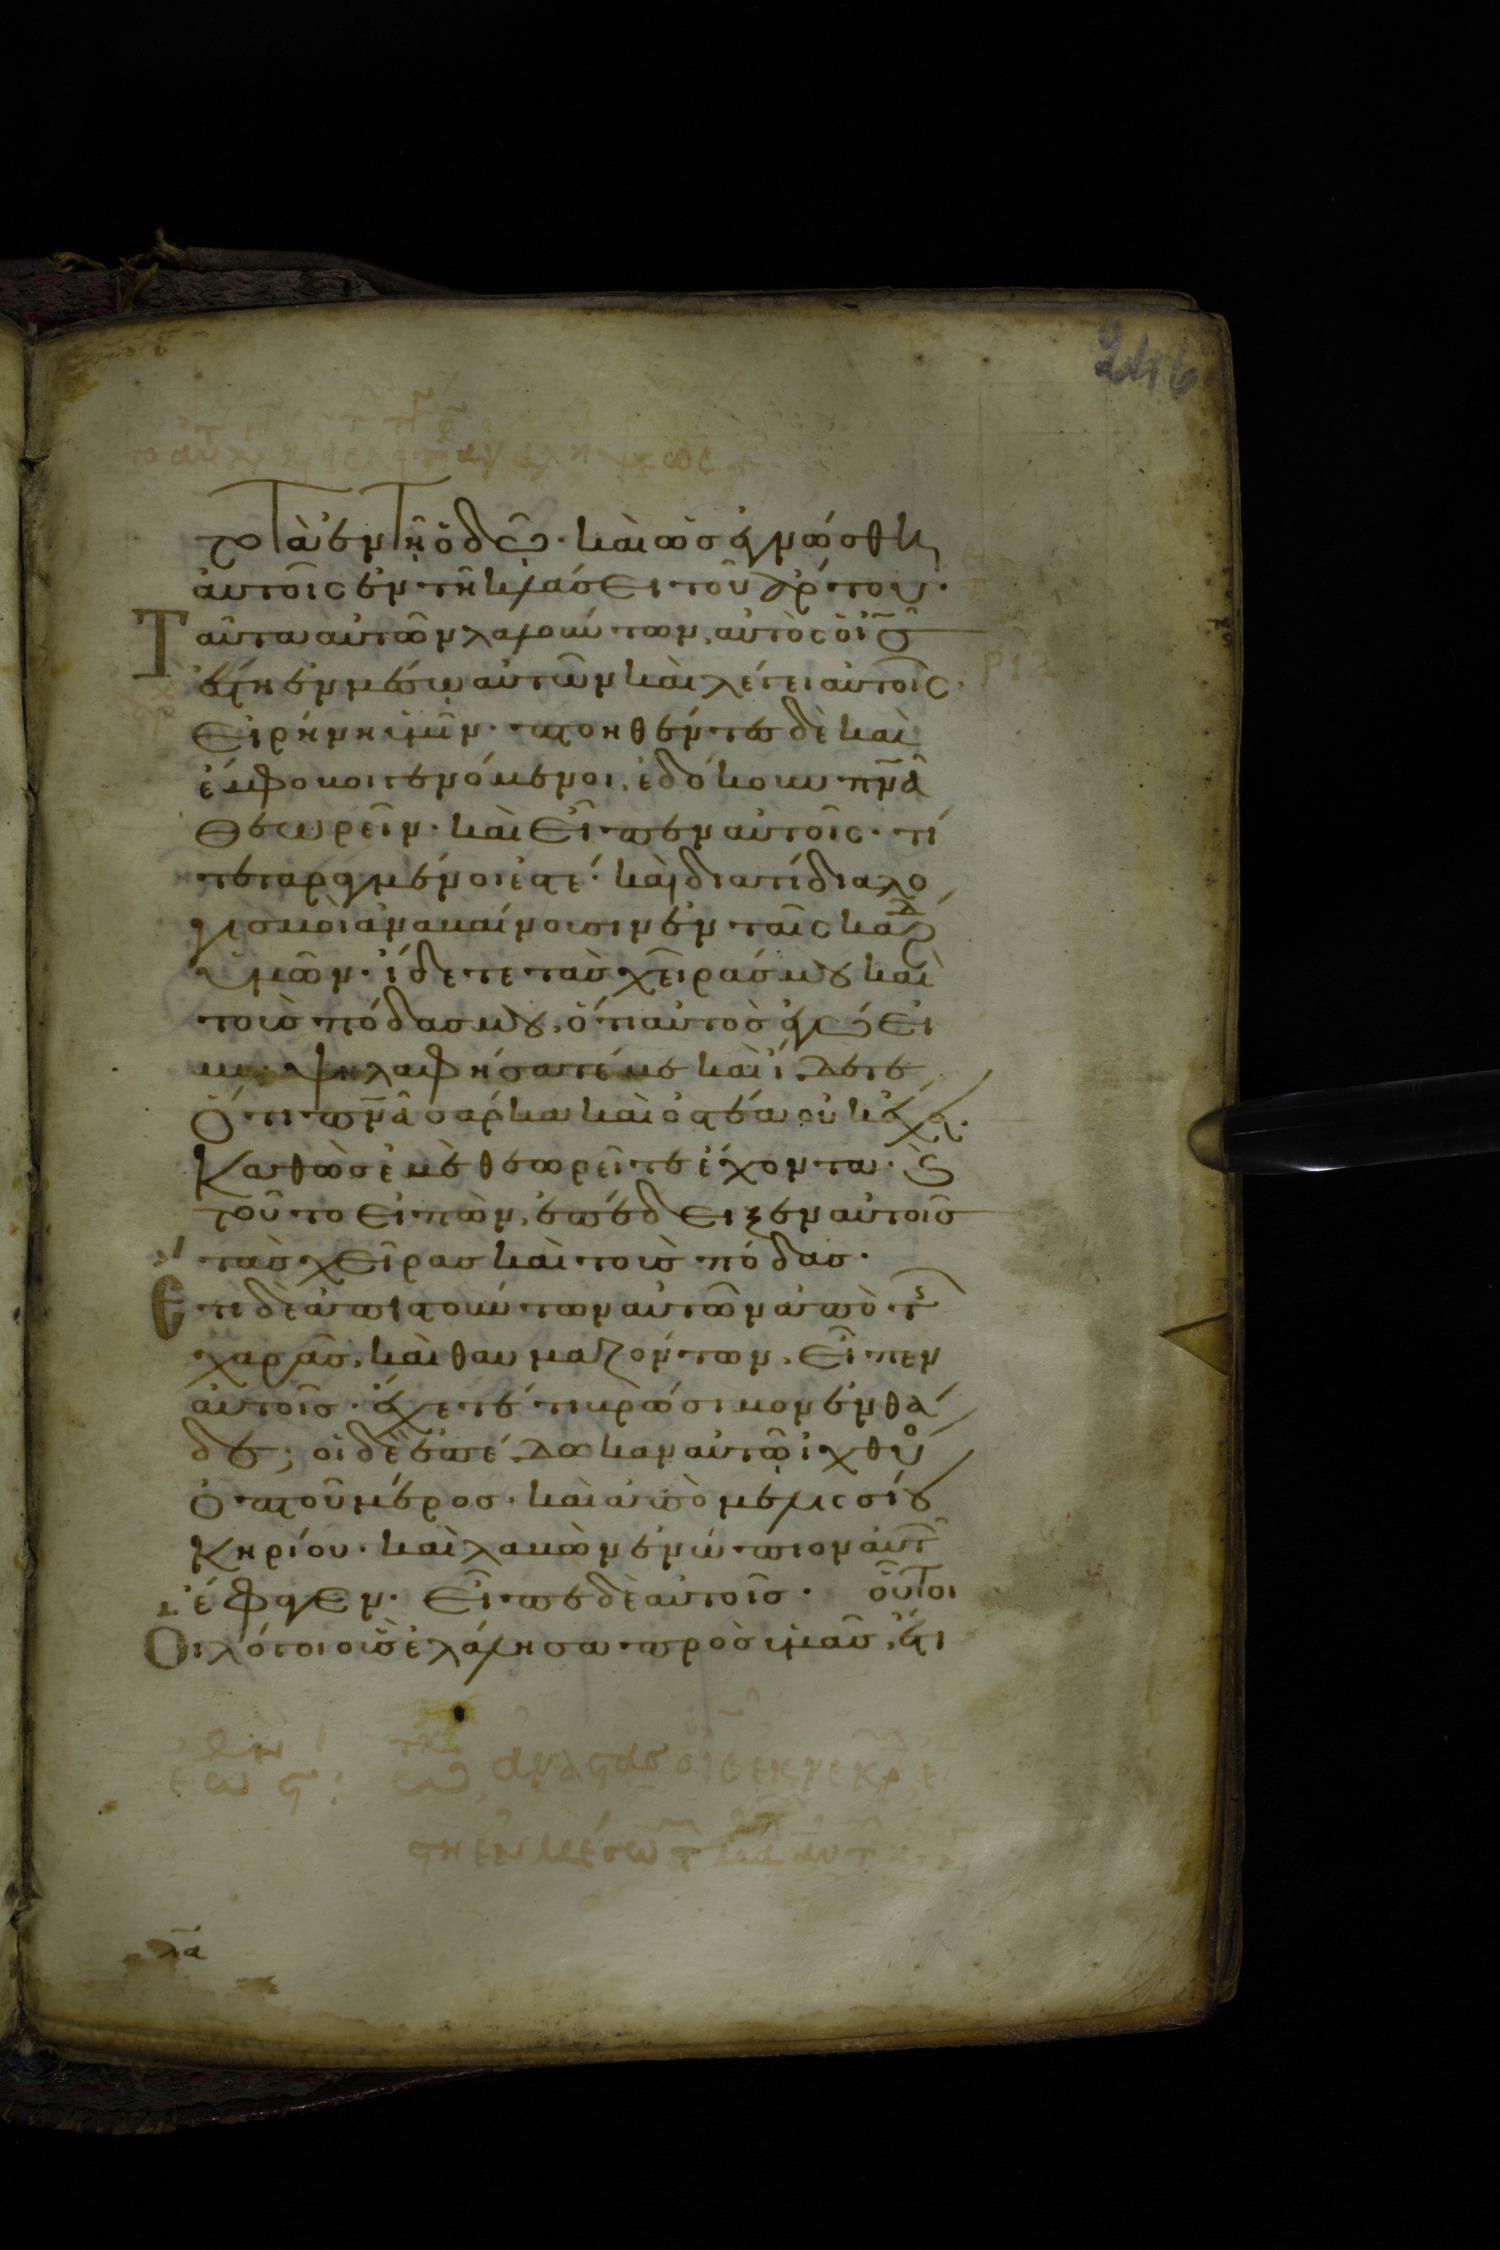 246
τὰ ἐν τῆ ὁδῶ· καὶ ὡς ἐγνώσθη
αὐτοῖς ἐν τῆ κλάσει τοῦ ἄρτου·
Ταῦτα αὐτῶν λαλούντων, αὐτὸς ὁ ἰ̅ς̅
ἔστη ἐν μέσω αὐτῶν καὶ λέγει αὐτοῖς·
Εἰρήνη ὑμῖν· πτοηθέντες δὲ καὶ
ἔμφοβοι γενόμενοι, ἐδόκουν π̅ν̅α̅
θεωρεῖν· καὶ εἶπεν αὐτοῖς· τί
τεταραγμένοι ἐστέ· καὶ διατί διαλο
γισμοὶ ἀναβαίνουσιν ἐν ταῖς καρδ
ὑμῶν· ἴδετε τὰς χεῖρας μου καὶ
τοὺς πόδας μου, ὅτι αὐτὸς ἐγώ εἰ
μι· ψηλαφήσατέ με καὶ ἴδετε
Ὅτι π̅ν̅α̅ σάρκα καὶ ὀστέα οὐκ ἔχει·
Καθὼς ἐμὲ θεωρεῖτε ἔχοντα· Ϗ
τοῦτο εἰπὼν, ἐπέδειξεν αὐτοῖς
τὰς χεῖρας καὶ τοὺς πόδας·
Ἔτι δὲ ἀπιστούντων αὐτῶν ἀπὸ τῆς
χαρᾶς, καὶ θαυμαζόντων, εἶπεν
αὐτοῖς· ἔχετέ τι βρώσιμον ἐνθά
δε; οἱ δὲ ἐπέδωκαν αὐτῶ ἰχθύ
ὀπτοῦ μέρος· καὶ ἀπὸ μελισσίου
Κηρίου· καὶ λαβὼν ἐνώπιον αὐτ
ἔφαγεν· εἶπε δὲ αὐτοῖς· οὗτοι
Οἱ λόγοι οὓς ἐλάλησα πρὸς ὑμᾶς, ἔτι
ἀναστὰς ὁ ἰς ἐκ νεκρ ἔ
στη ἐν μέσω τ μαθ αὐτ
λα